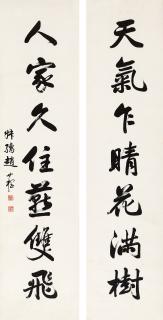 天氣乍晴花滿樹
人家久住燕雙飛
趙少昂